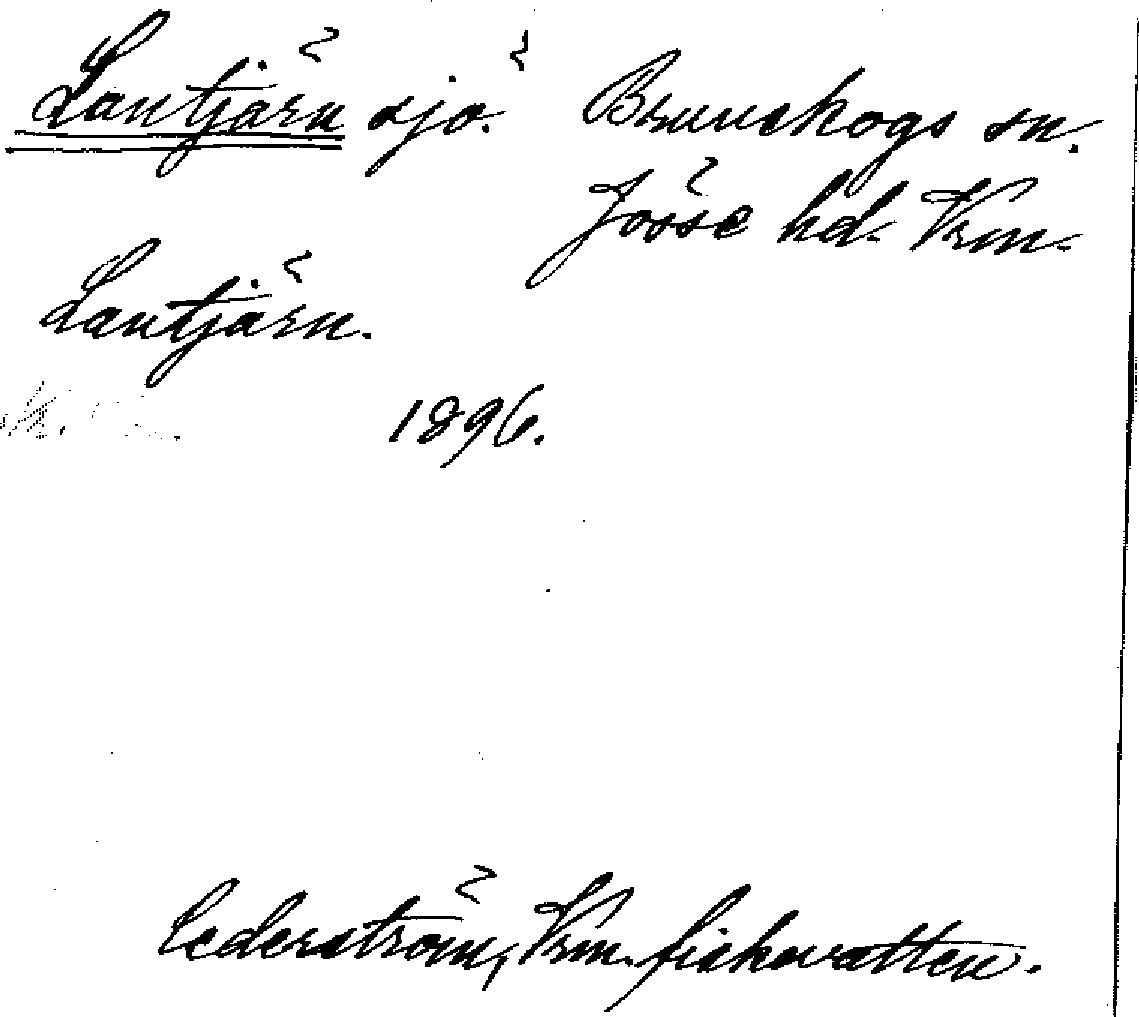 Lantjärn sjö. Brunskogs sn.
Jösse hd. Vrm.
Lantjärn.
1896.
Cederström, Vrm. fiskevatten.